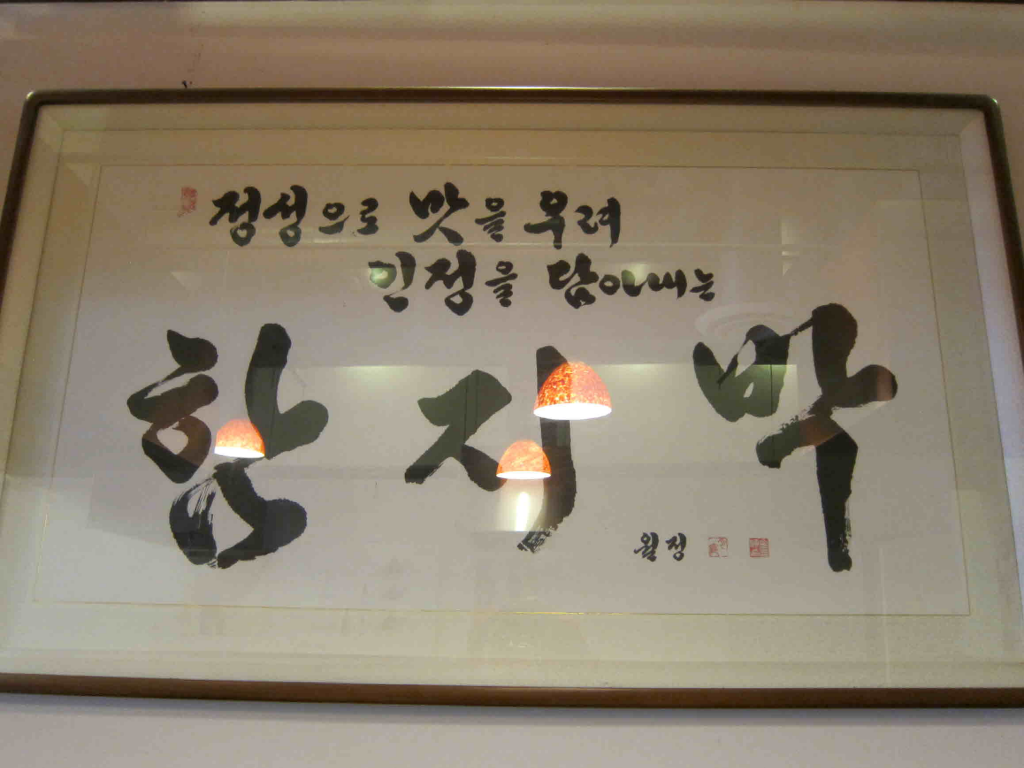 정성으로 맛을 우려
인정을 담아내는
함지박
월정